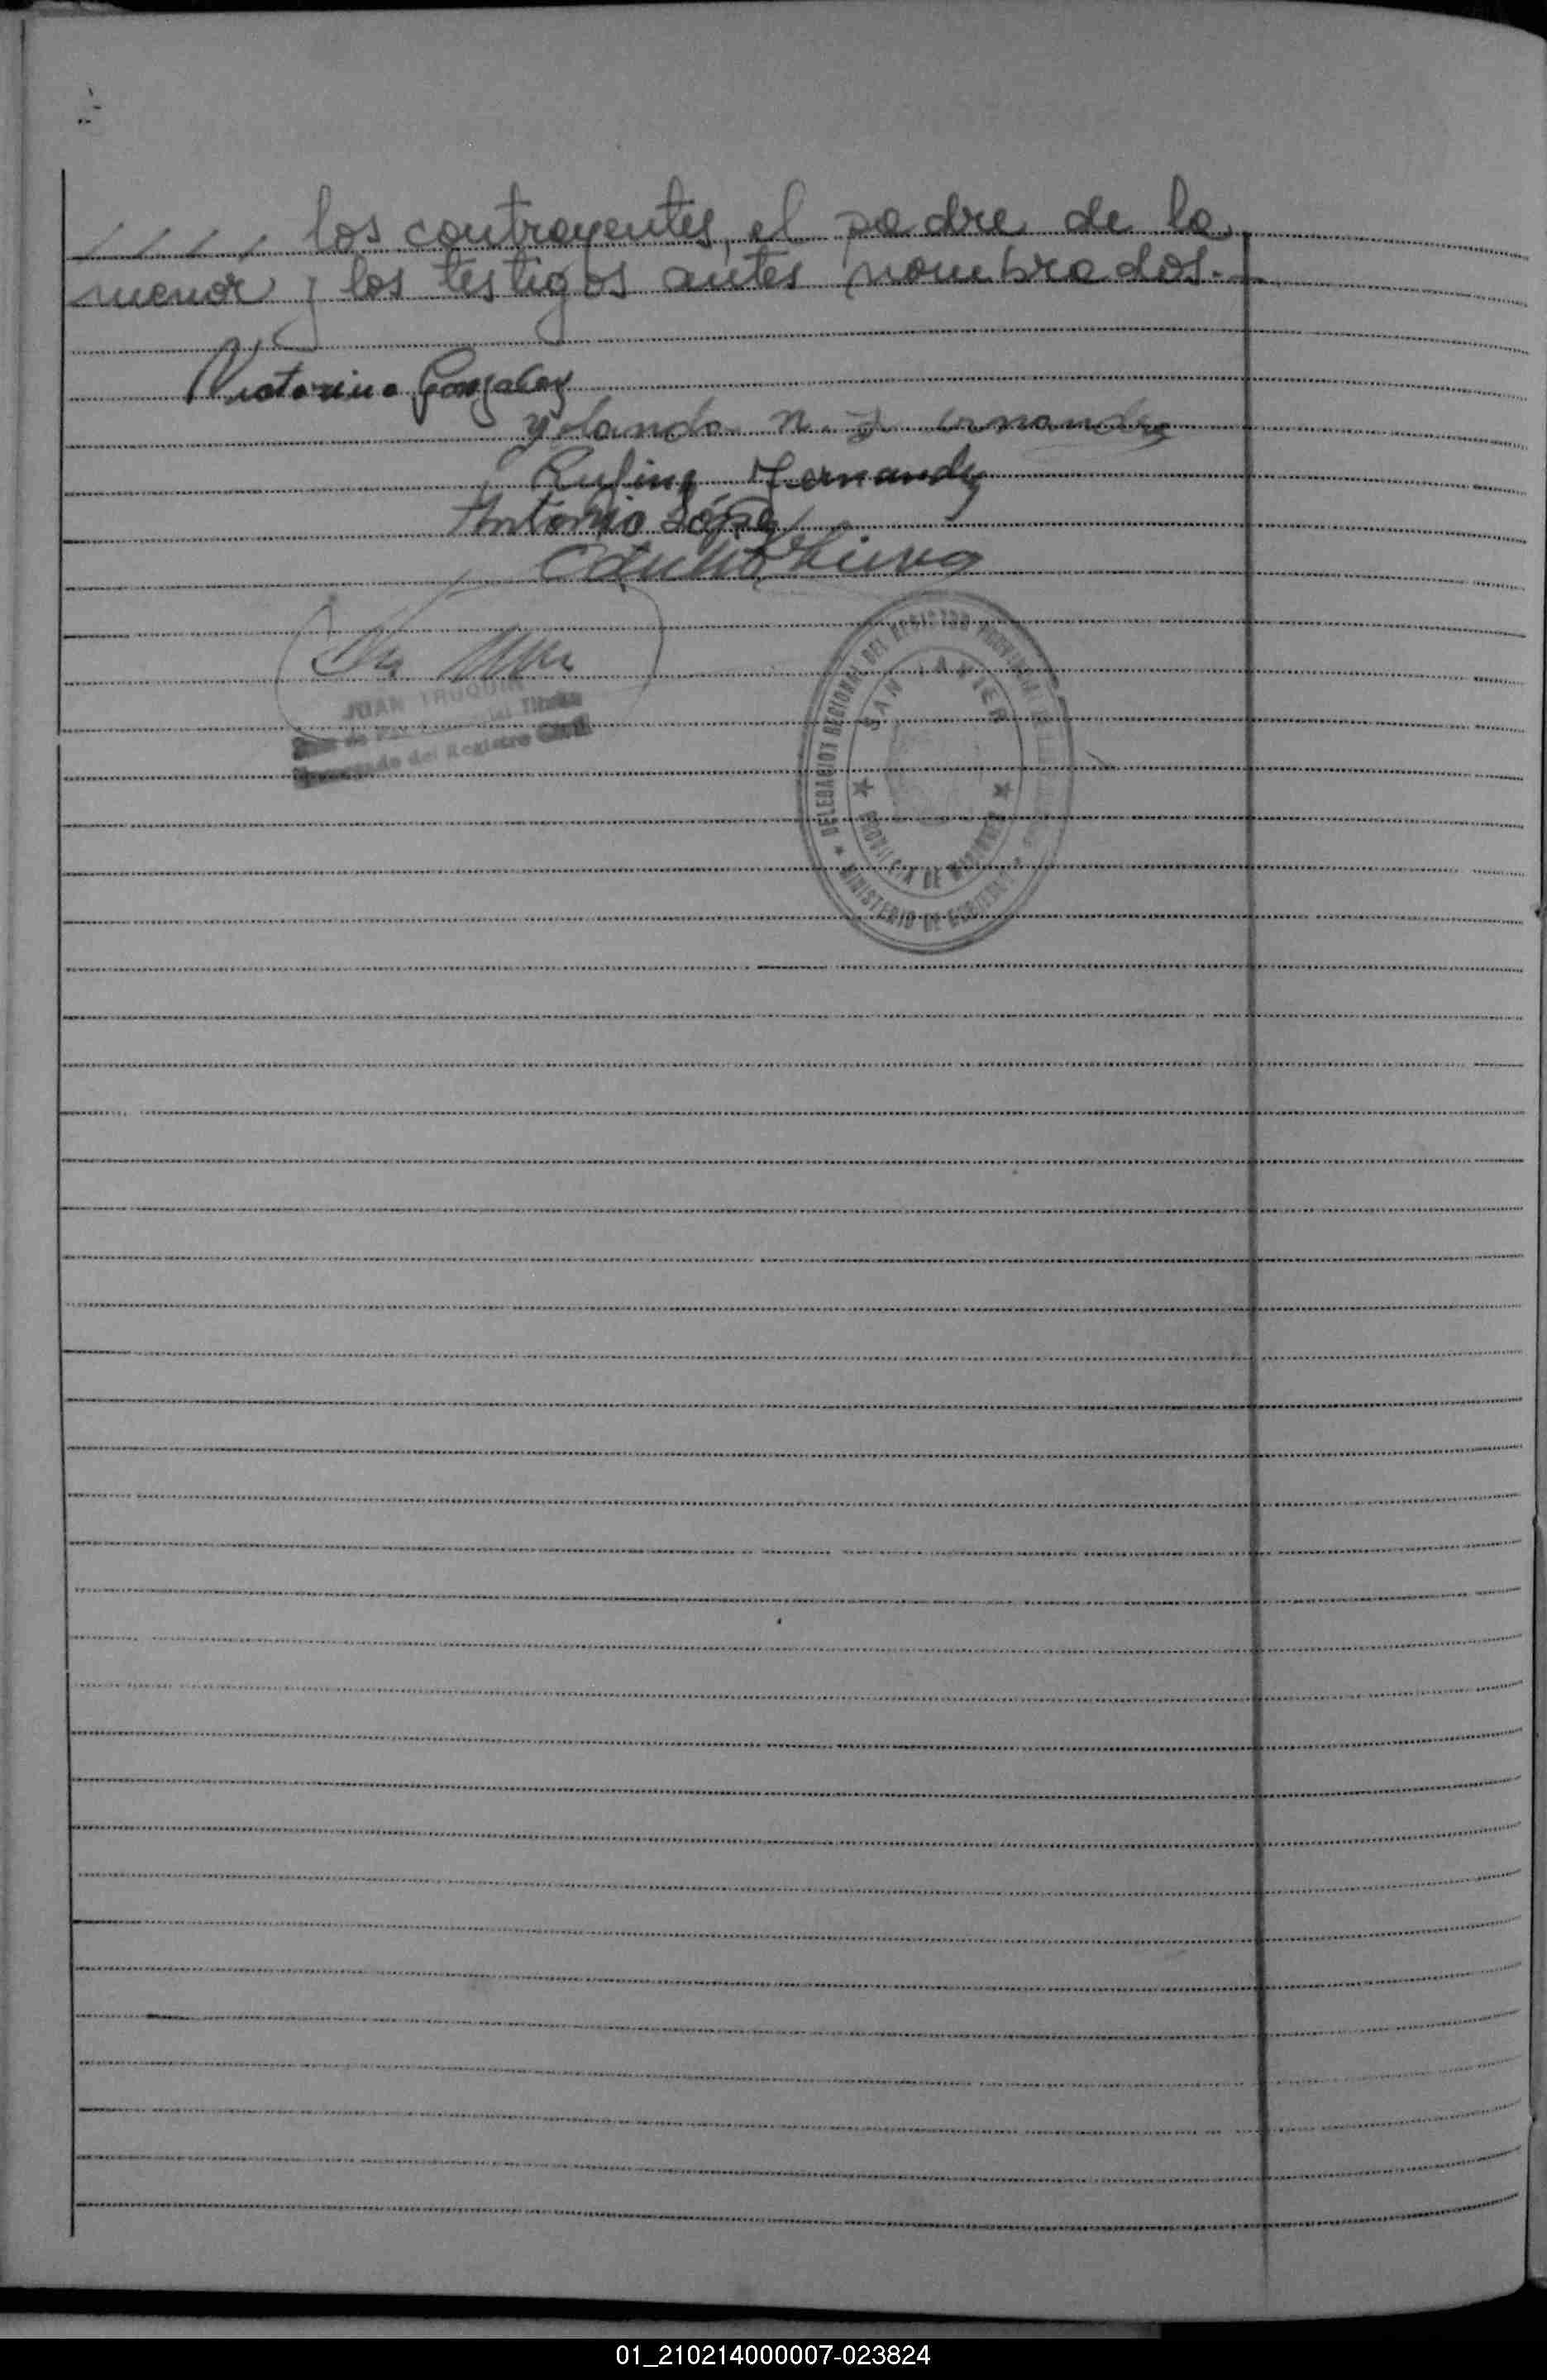 los contrayentes, el padre de la
menor y los testigos antes nombrados.-
Victorino Gonzalez
Yolanda N. Fernandez
Rufino Fernandez
Antonio López
JUAN TRUQUIN
Juez de Paz Titular
Encargado del Registro Civil
DELEGACION REGIONAL DEL REGISTRO PROVINCIAL DE
SAN JAVIER
PROVINCIA DE MISIONES
MINISTERIO DE GOBIERNO
01_210214000007-023824